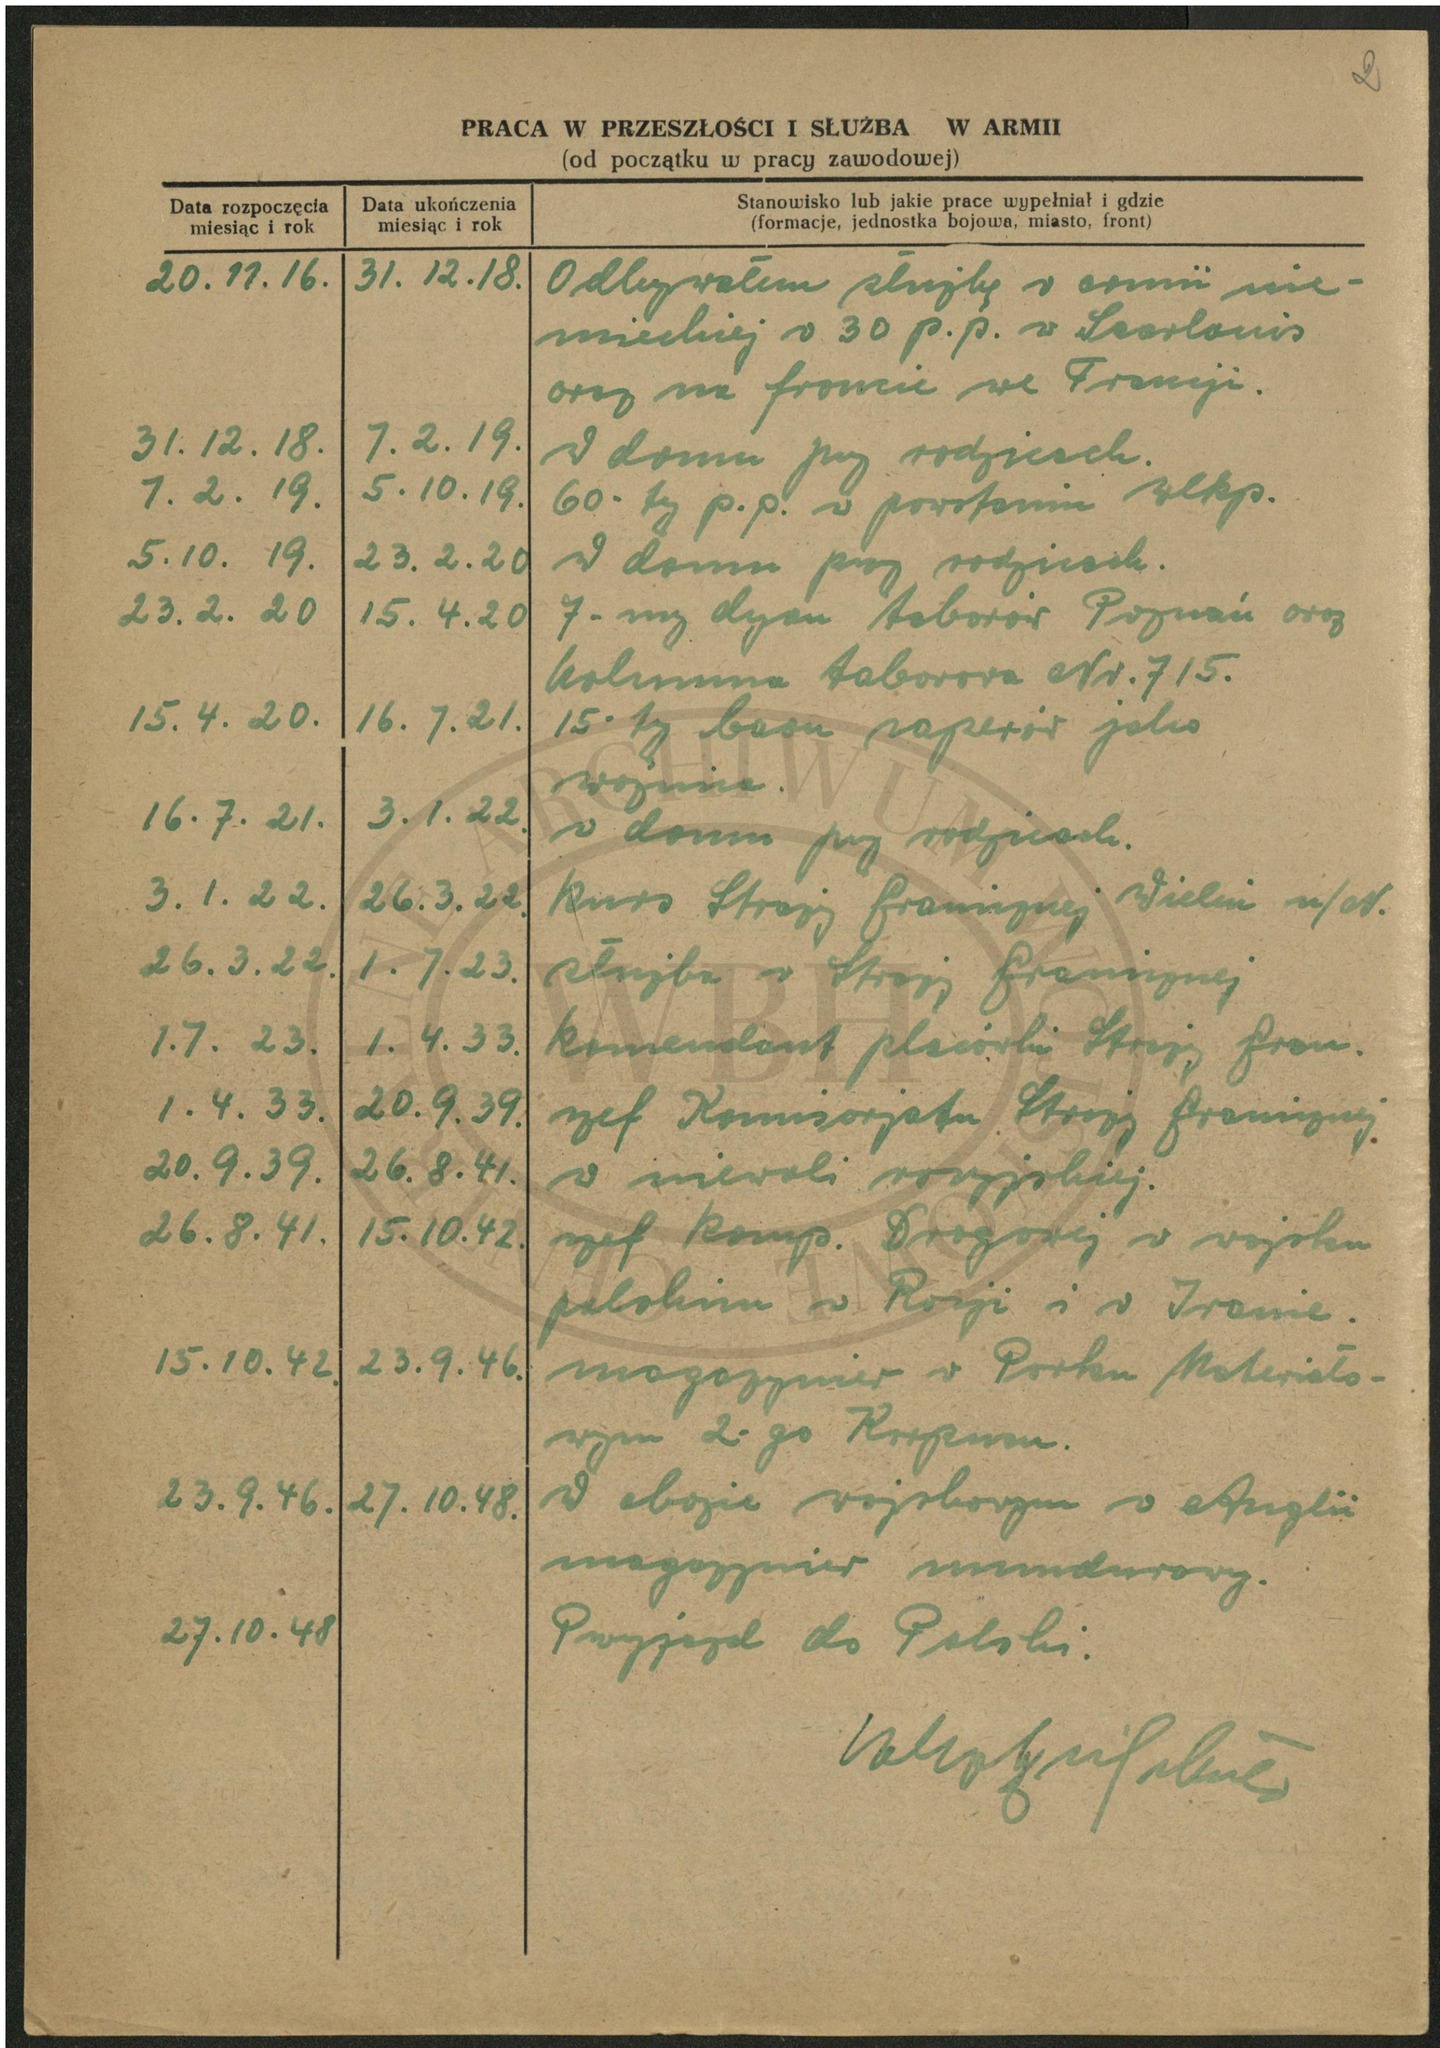 2
PRACA W PRZESZŁOŚCI I SŁUŻBA W ARMII
(od początku w pracy zawodowej)
Data rozpoczęcia miesiąc i rok | Data ukończenia miesiąc i rok | Stanowisko lub jakie prace wypełniał i gdzie (formacje, jednostka bojowa, miasto, front)
20.11.16. 31.12.18. Odbywałem służbę w armii nie-
mieckiej w 30 p.p. w Saarlouis
oraz na froncie we Francji.
31.12.18. 7.2.19. W domu przy rodzicach.
7.2.19. 5.10.19. 60-ty p.p. w powstaniu Wlkp.
5.10.19. 23.2.20 W domu przy rodzicach.
23.2.20 15.4.20 7-my dyon taborów Poznań oraz
kolumna taborowa Nr.715.
15.4.20. 16.7.21. 15-ty baon saperów jako
woźnica.
16.7.21. 3.1.22. w domu przy rodzicach.
3.1.22. 26.3.22. kurs Straży Granicznej Wieleń n/N.
26.3.22. 1.7.23. służba w Straży Granicznej
1.7.23. 1.4.33. komendant placówki Straży Gran.
1.4.33. 20.9.39. szef Komisarjatu Straży Granicznej
20.9.39. 26.8.41. w niewoli rosyjskiej.
26.8.41. 15.10.42. szef komp. Drogowej w wojsku
polskim w Rosji i w Iranie.
15.10.42. 23.9.46. magazynier w Parku Materiało-
wym 2-go Korpusu.
23.9.46. 27.10.48. W obozie wojskowym w Anglii
magazynier mundurowy.
27.10.48 Przyjazd do Polski.
ARCHIWUM WOJSKOWE
WBH